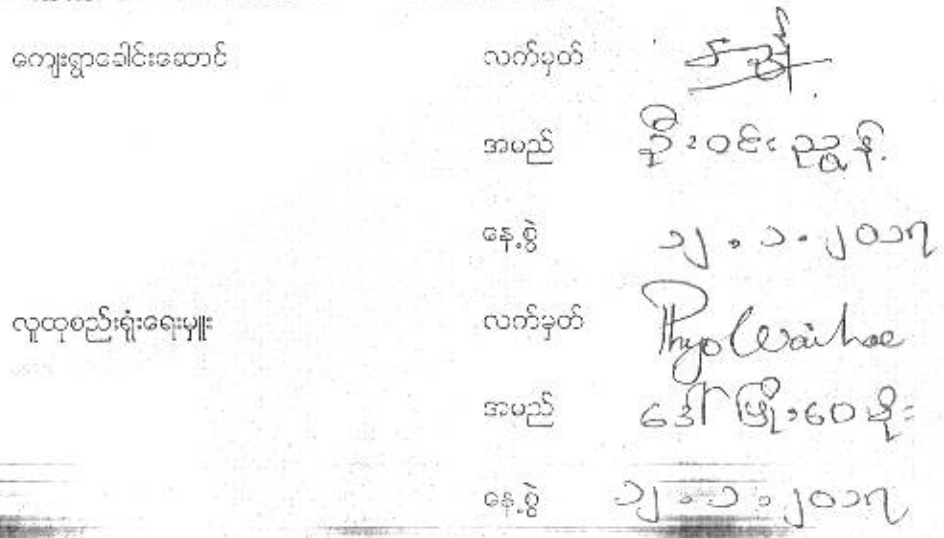 ကျေးရွာခေါင်းဆောင် လက်မှတ်
အမည် ဦးဝင်းညွန့်
နေ့စွဲ ၁၂.၁.၂၀၁၇
လူထုစည်းရုံးရေးမှူး လက်မှတ် Phyo Wai
အမည် ဒေါ်ဖြိုးဝေ
နေ့စွဲ ၁၂.၁.၂၀၁၇